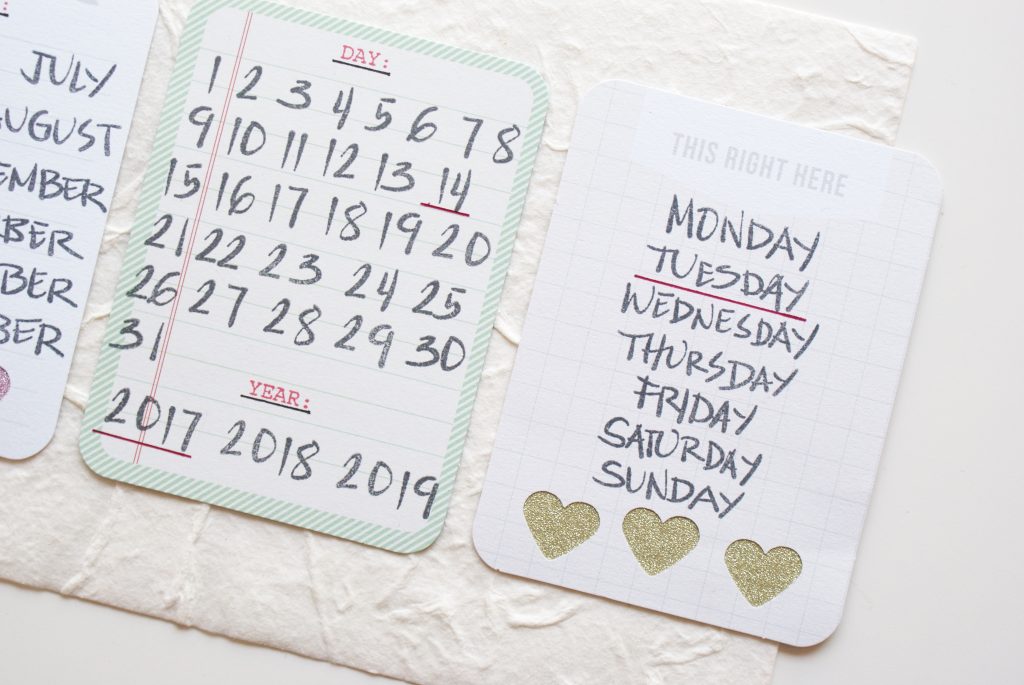 JULY
AUGUST
EMBER
BER
BER
BER
DAY:
1 2 3 4 5 6 7 8
9 10 11 12 13 14
15 16 17 18 19 20
21 22 23 24 25
26 27 28 29 30
31
YEAR:
2017 2018 2019
THIS RIGHT HERE
MONDAY
TUESDAY
WEDNESDAY
THURSDAY
FRIDAY
SATURDAY
SUNDAY